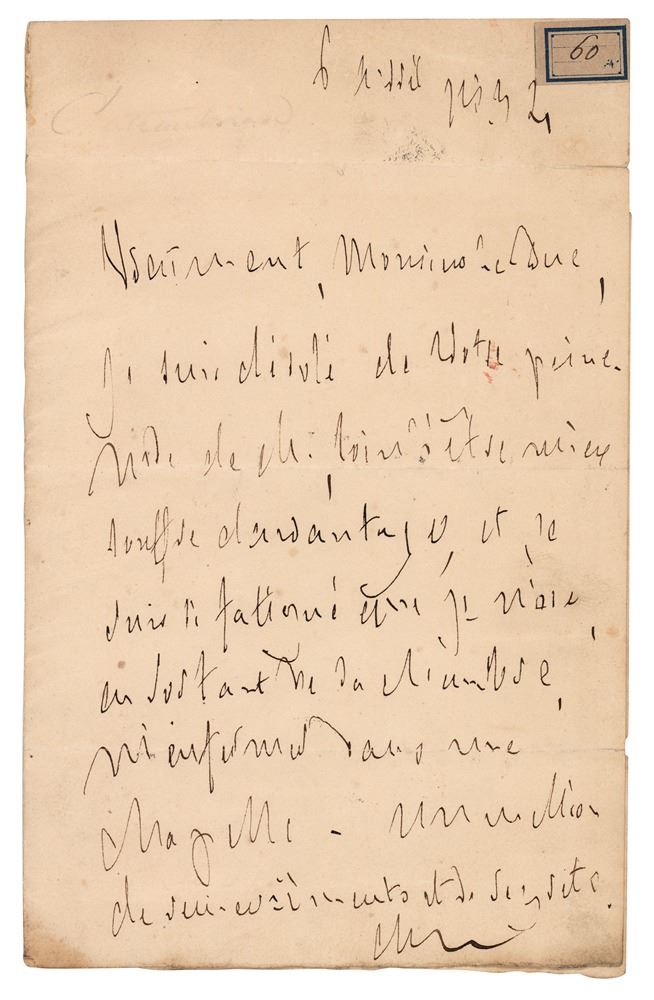 60
Chateaubriand
6
Vraiment, Monsieur le Duc,
je suis désolé de votre peine.
Mde de Ch. loin d'être mieux
souffre davantage, et je
suis si que je n'ose,
en sortant de sa chambre,
m'enfermer dans une
Chapelle - un million
de remerciements et de regrets.
Ch